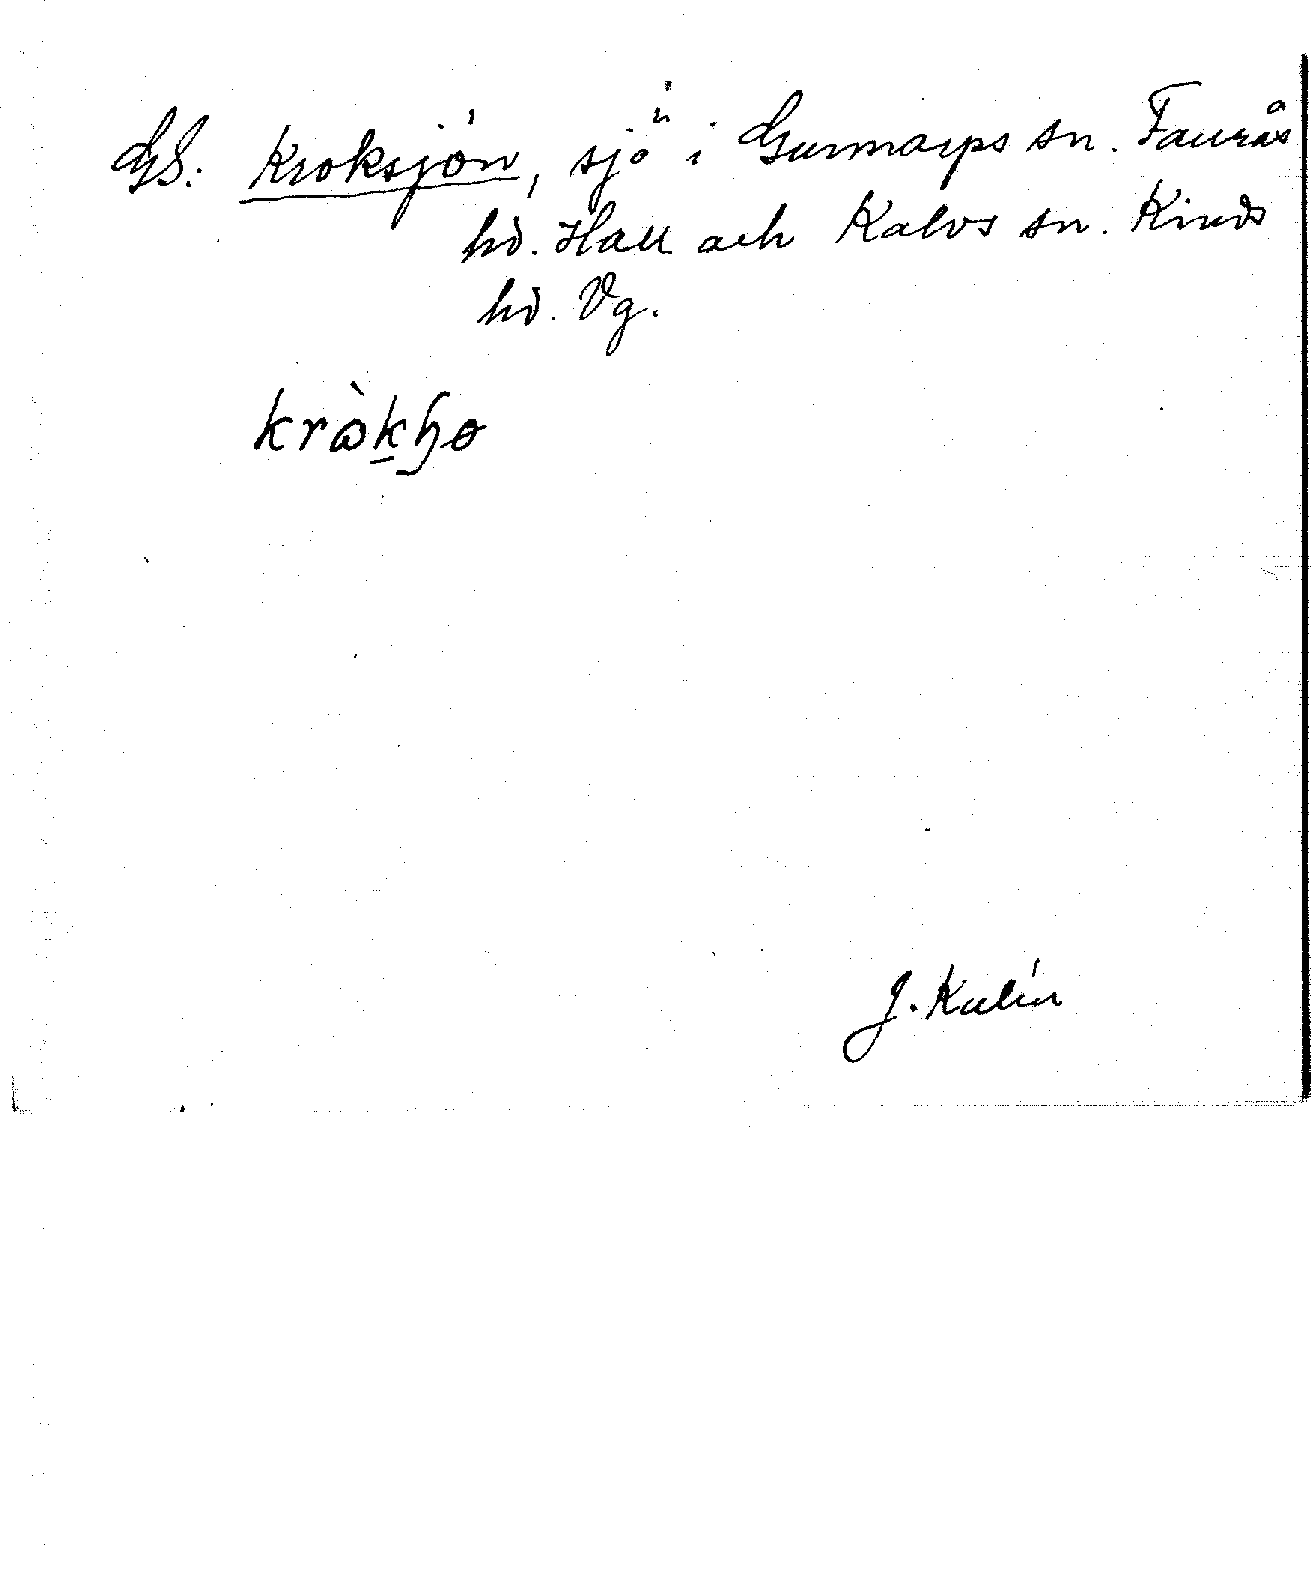 GS: Kroksjön, sjö i Gunnarps sn. Faurås
hd. Hall och Kalvs sn. Kinds
hd. Vg.
J. Kalén